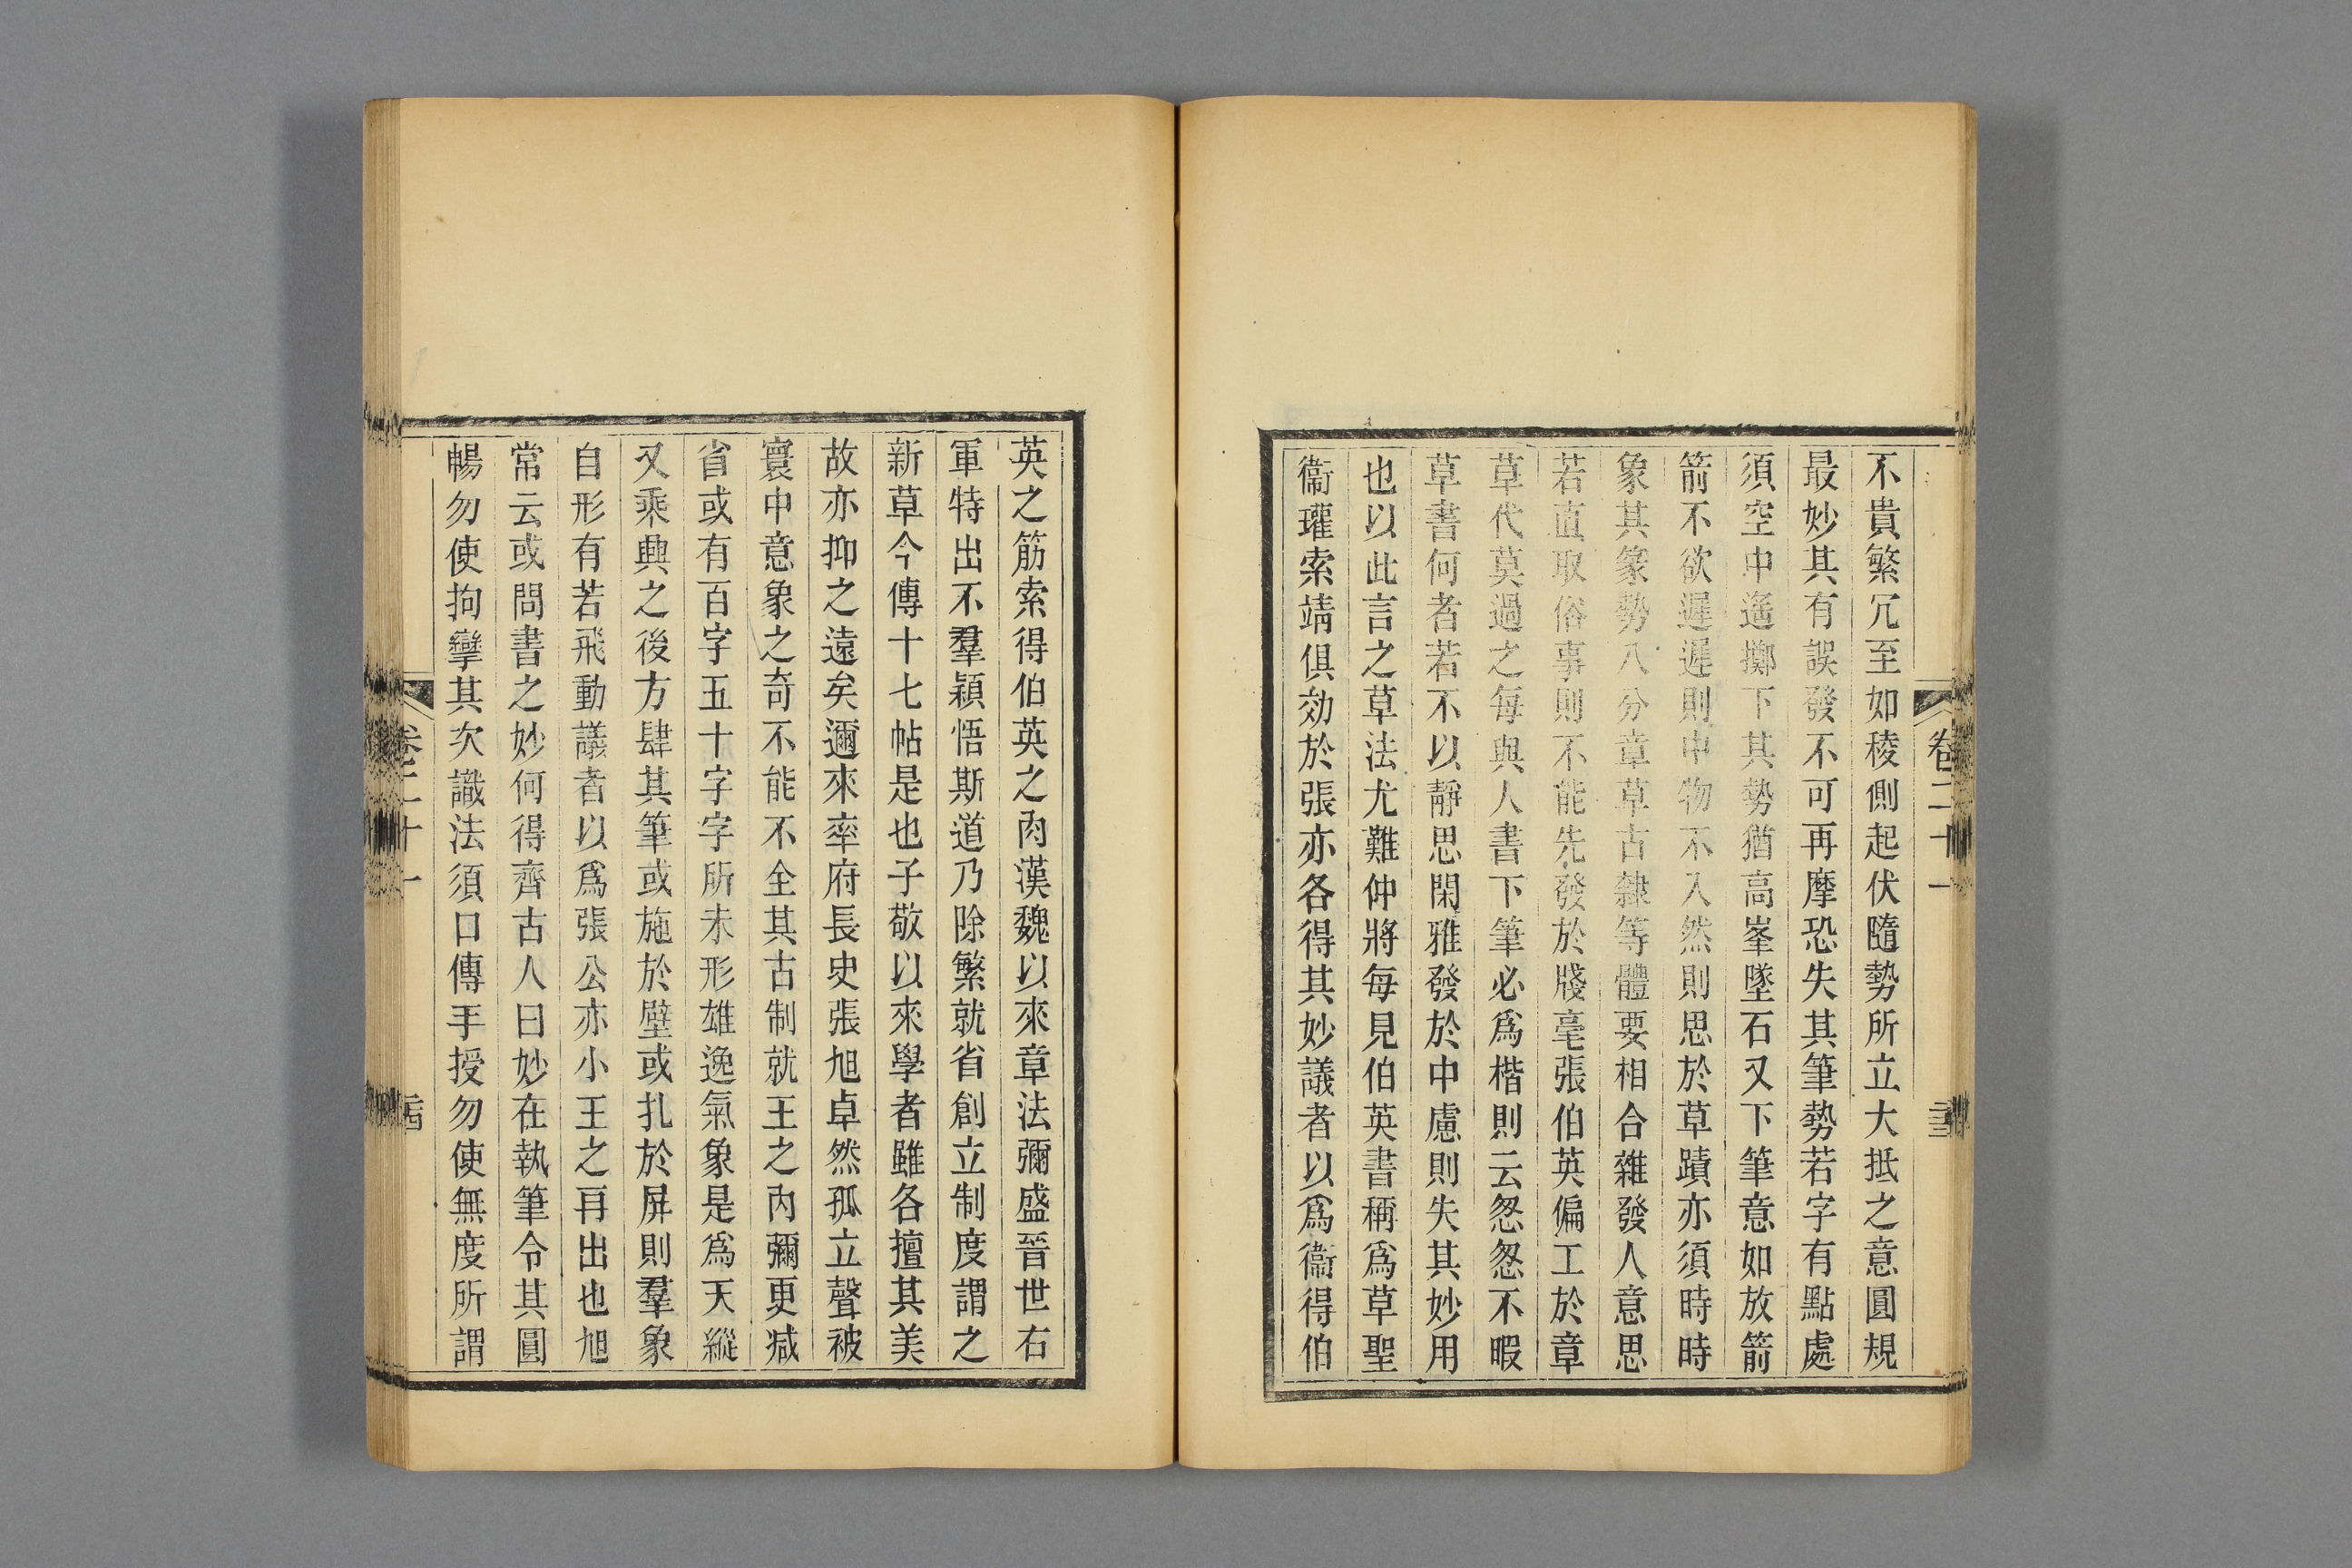 卷二十一
不貴繁冗至如稜側起伏隨勢所立大抵之意圓規
最妙其有誤發不可再摩恐失其筆勢若字有點處
須空中遙擲下其勢猶高峯墜石又下筆意如放箭
箭不欲遲遲則中物不入然則思於草蹟亦須時時
象其篆勢八分章草古隸等體要相合雜發人意思
若直取俗事則不能先發於牋毫張伯英偏工於章
草代莫過之每與人書下筆必爲楷則云怱怱不暇
草書何者若不以靜思閑雅發於中慮則失其妙用
也以此言之草法尤難仲將每見伯英書稱爲草聖
衞瓘索靖俱効於張亦各得其妙議者以爲衞得伯
英之筋索得伯英之肉漢魏以來章法彌盛晉世右
軍特出不羣穎悟斯道乃除繁就省創立制度謂之
新草今傳十七帖是也子敬以來學者雖各擅其美
故亦抑之遠矣邇來率府長史張旭卓然孤立聲被
寰中意象之奇不能不全其古制就王之內彌更減
省或有百字五十字字所未形雄逸氣象是爲天縱
又乘興之後方肆其筆或施於壁或扎於屏則羣象
自形有若飛動議者以爲張公亦小王之再出也旭
常云或問書之妙何得齊古人曰妙在執筆令其圓
暢勿使拘攣其次識法須口傳手授勿使無度所謂
卷二十一